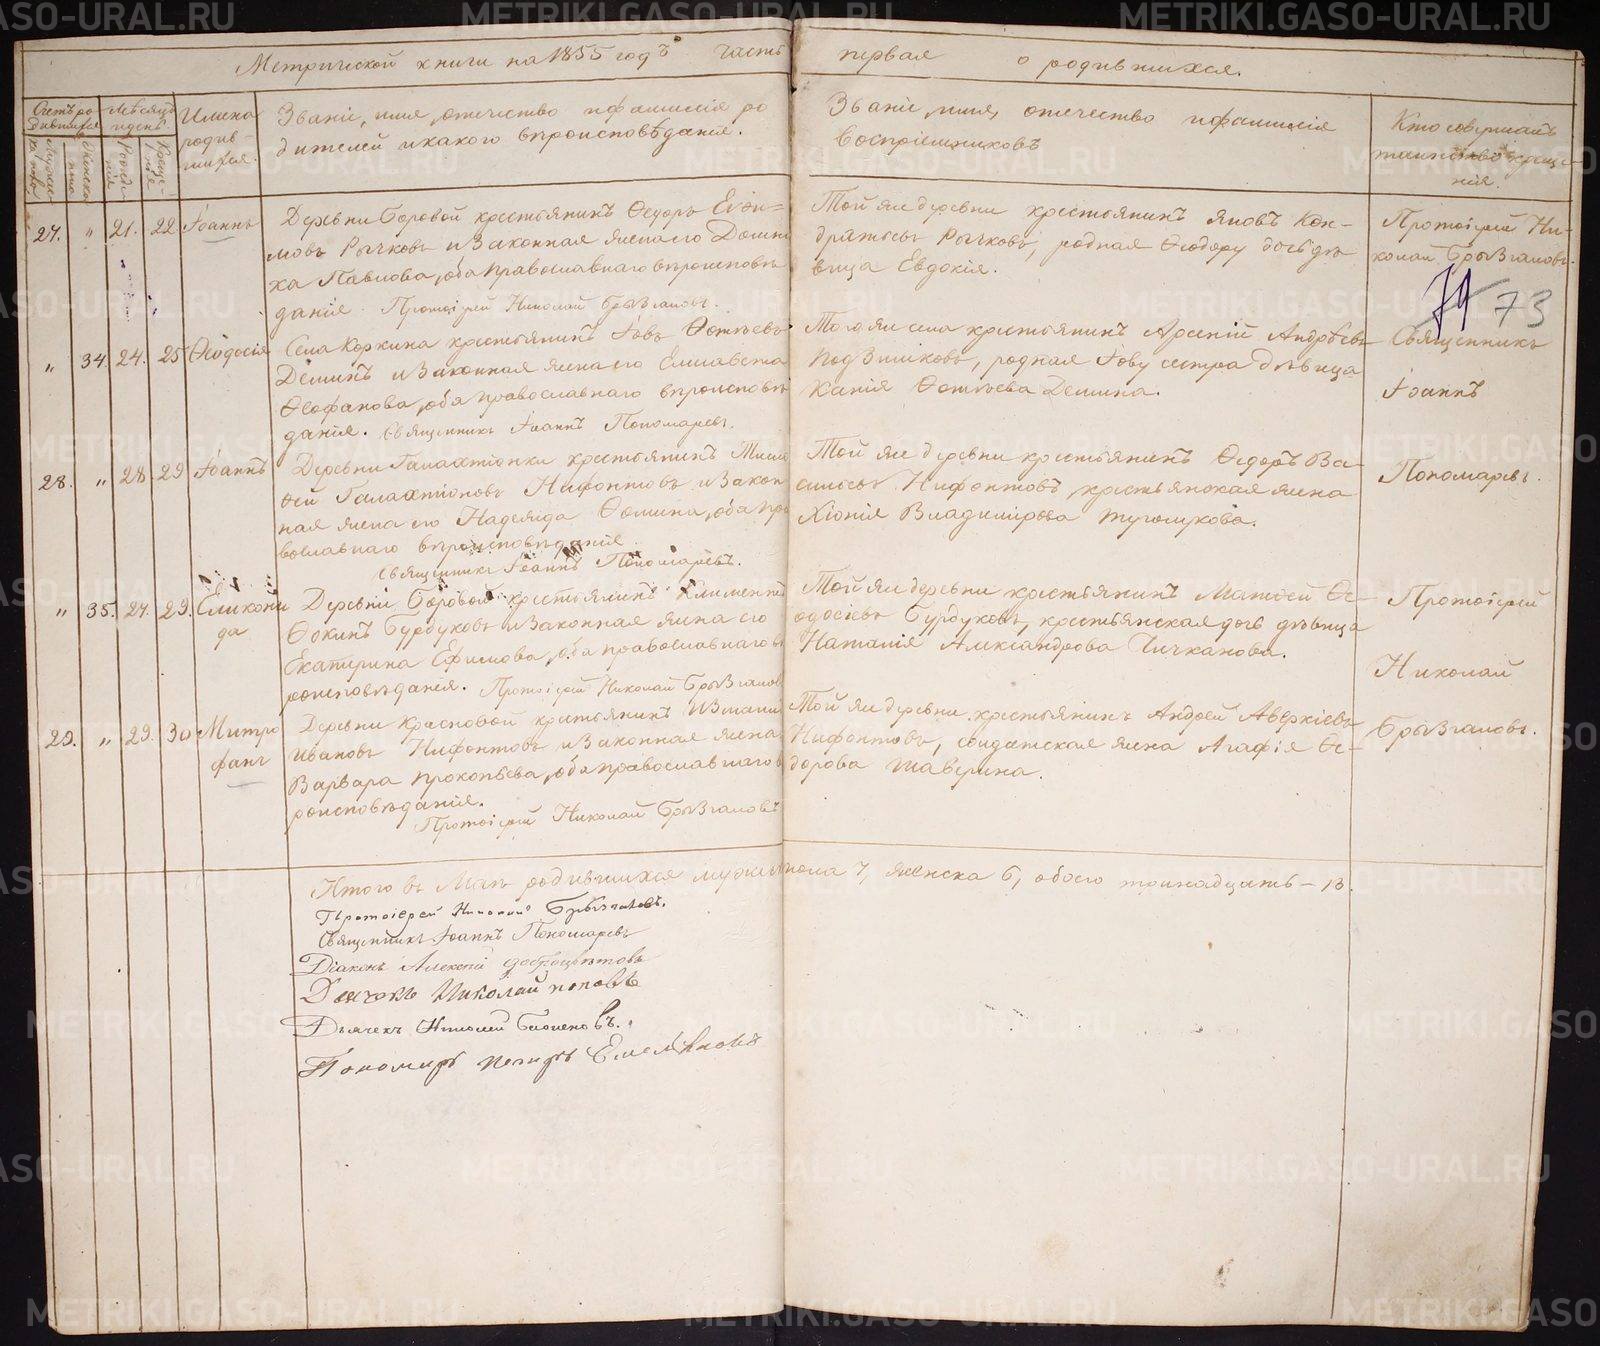 Метрической книги на 1855 годъ часть первая о родившихся.
Счетъ родившихся
Мѣсяцъ и день
Имена родившихся.
Званіе, имя, отчество и фамилія родителей и какого вѣроисповѣданія.
Званіе, имя, отечество и фамилія воспріемниковъ
Кто совершалъ таинство крещенія.
Мужеска пола
Женска
Рожденія
Крещенія
27. " 21. 22 Іоаннъ
Деревни Боровой крестьянинъ Ѳедоръ Ефи=
мовъ Рычковъ и законная жена его Домни
ка Павлова, оба православнаго вѣроисповѣ
данія. Протоіерей Николай Брызгаловъ.
Той же деревни крестьянинъ Яковъ Кон-
дратьевъ Рычковъ, родная Ѳеодору дочь дѣ
вица Евдокія.
Протоіерей Ни-
колай Брызгаловъ.
79 73
" 34 24. 25 Ѳеодосія
Села Коркина крестьянинъ Іовъ Ѳотѣевъ
Деминъ и законная жена его Елисавета
Ѳеофанова, оба православнаго вѣроисповѣ
данія. Священникъ Іоаннъ Пономаревъ.
Того же села крестьянинъ Арсеній Андрѣевъ
Подвишковъ, родная Іову сестра дѣвица
Ѳотѣева Демина.
Священникъ
Іоаннъ
Пономаревъ.
28. " 28 29 Іоаннъ
Деревни Галактіонки крестьянинъ Тимо
ѳей Галактіоновъ Нифонтовъ и закон
ная жена его Надежда Ѳомина, оба пра
вославнаго вѣроисповѣданія
Священникъ Іоаннъ Пономаревъ.
Той же деревни крестьянинъ Ѳедоръ Ва-
сильевъ Нифонтовъ, крестьянская жена
Хіонія Владимірова
" 35. 27. 29. Еликони
да
Деревни Боровой крестьянинъ Климентій
Ѳокинъ Бурдуковъ и законная жена его
Екатерина Ефимова, оба православнаго вѣ
роисповѣданія. Протоіерей Николай Брызгаловъ
Той же деревни крестьянинъ Матѳей Ѳе-
одосіевъ Бурдуковъ, крестьянская дочь дѣвица
Наталія Александрова Чичканова.
Протоіерей
Николай
Брызгаловъ.
29. " 29. 30 Митро
фанъ
Деревни Красновой крестьянинъ Измаилъ
Ивановъ Нифонтовъ и законная жена
Варвара Прокопьева, оба православнаго вѣ
роисповѣданія.
Протоіерей Николай Брызгаловъ
Той же деревни крестьянинъ Андрей Аверкіевъ
Нифонтовъ, солдатская жена Агафія Ѳе-
дорова Шаврина.
Итого въ Маѣ родившихся мужска пола 7, женска 6, обоего тринадцать – 13.
Протоіерей Николай Брызгаловъ.
Священникъ Іоаннъ Пономаревъ
Діаконъ Алексій Доброцвѣтовъ
Дьячекъ Николай Поповъ
Дьячекъ Николай
Пономарь Петръ Емельяновъ
METRIKI.GASO-URAL.RU